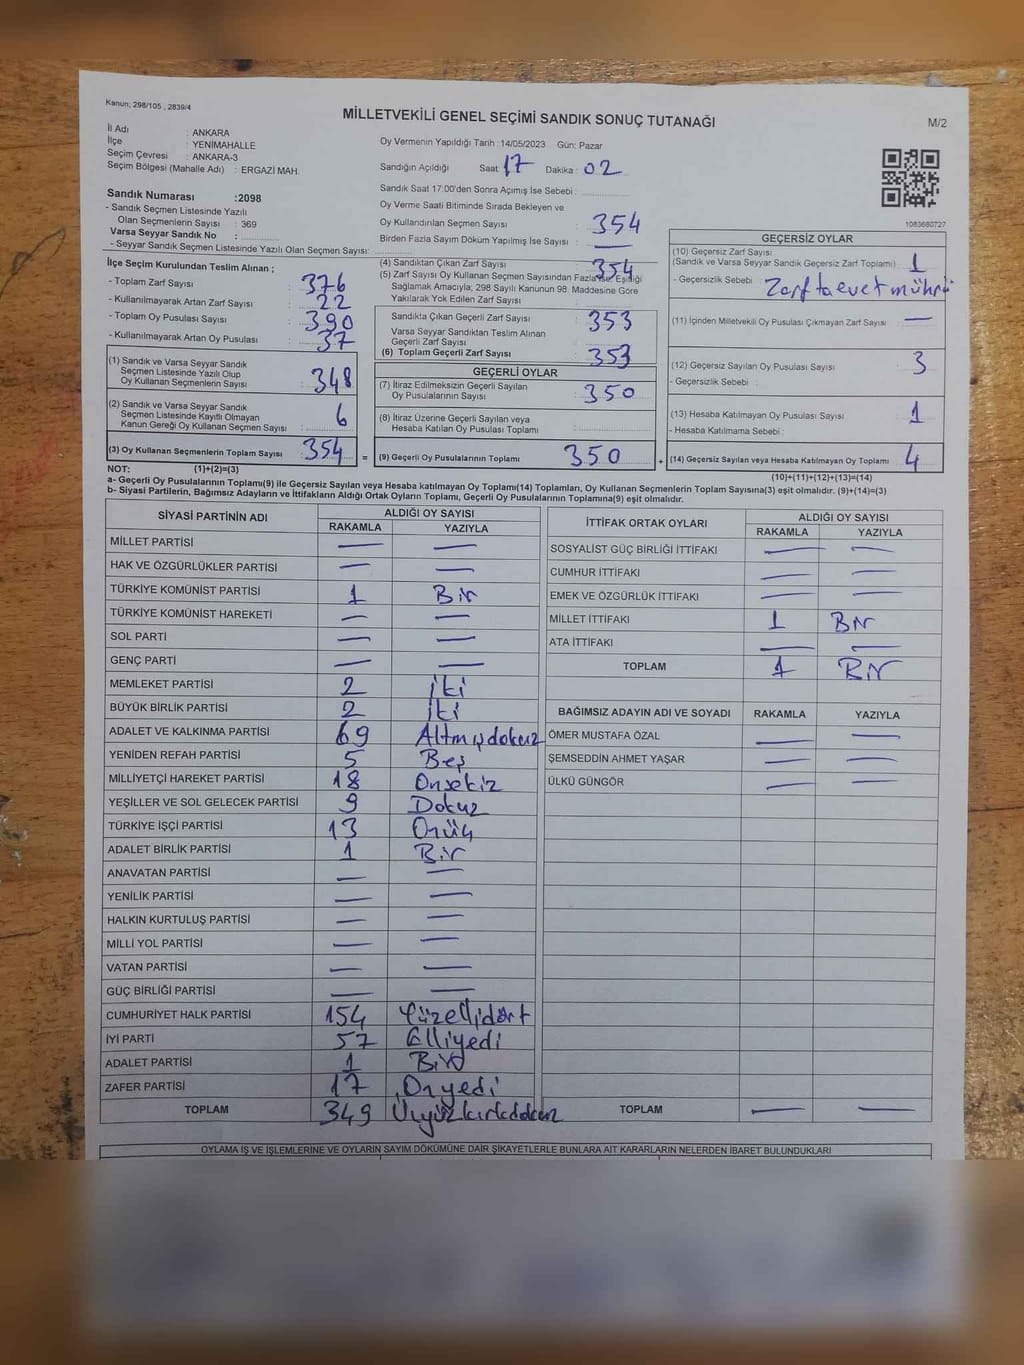 Kanun; 298/105 , 2839/4
MİLLETVEKİLİ GENEL SEÇİMİ SANDIK SONUÇ TUTANAĞI
M/2
İl Adı : ANKARA
İlçe : YENİMAHALLE
Seçim Çevresi : ANKARA-3
Seçim Bölgesi (Mahalle Adı) : ERGAZİ MAH.
Oy Vermenin Yapıldığı Tarih :14/05/2023 Gün: Pazar
Sandığın Açıldığı Saat: 17 Dakika : 02
Sandık Saat 17:00'den Sonra Açımış İse Sebebi :
Oy Verme Saati Bitiminde Sırada Bekleyen ve
Oy Kullandırılan Seçmen Sayısı : 354
Birden Fazla Sayım Döküm Yapılmış İse Sayısı : —
1083680727
Sandık Numarası :2098
- Sandık Seçmen Listesinde Yazılı
Olan Seçmenlerin Sayısı : 369
Varsa Seyyar Sandık No :
- Seyyar Sandık Seçmen Listesinde Yazılı Olan Seçmen Sayısı:
İlçe Seçim Kurulundan Teslim Alınan ;
- Toplam Zarf Sayısı : 376
- Kullanılmayarak Artan Zarf Sayısı : 22
- Toplam Oy Pusulası Sayısı : 390
- Kullanılmayarak Artan Oy Pusulası : 37
(1) Sandık ve Varsa Seyyar Sandık
Seçmen Listesinde Yazılı Olup
Oy Kullanan Seçmenlerin Sayısı : 348
(2) Sandık ve Varsa Seyyar Sandık
Seçmen Listesinde Kayıtlı Olmayan
Kanun Gereği Oy Kullanan Seçmen Sayısı : 6
(3) Oy Kullanan Seçmenlerin Toplam Sayısı : 354 =
(4) Sandıktan Çıkan Zarf Sayısı : 354
(5) Zarf Sayısı Oy Kullanan Seçmen Sayısından Fazla ise, Eşitliği
Sağlamak Amacıyla; 298 Sayılı Kanunun 98. Maddesine Göre
Yakılarak Yok Edilen Zarf Sayısı :
Sandıkta Çıkan Geçerli Zarf Sayısı : 353
Varsa Seyyar Sandıktan Teslim Alınan
Geçerli Zarf Sayısı :
(6) Toplam Geçerli Zarf Sayısı : 353
GEÇERLİ OYLAR
(7) İtiraz Edilmeksizin Geçerli Sayılan
Oy Pusulalarının Sayısı : 350
(8) İtiraz Üzerine Geçerli Sayılan veya
Hesaba Katılan Oy Pusulası Toplamı :
(9) Geçerli Oy Pusulalarının Toplamı : 350 +
GEÇERSİZ OYLAR
(10) Geçersiz Zarf Sayısı
(Sandık ve Varsa Seyyar Sandık Geçersiz Zarf Toplamı) : 1
- Geçersizlik Sebebi : Zarfta evet mührü
(11) İçinden Milletvekili Oy Pusulası Çıkmayan Zarf Sayısı : —
(12) Geçersiz Sayılan Oy Pusulası Sayısı : 3
- Geçersizlik Sebebi :
(13) Hesaba Katılmayan Oy Pusulası Sayısı : 1
- Hesaba Katılmama Sebebi :
(14) Geçersiz Sayılan veya Hesaba Katılmayan Oy Toplamı : 4
NOT: (1)+(2)=(3)
(10)+(11)+(12)+(13)=(14)
a- Geçerli Oy Pusulalarının Toplamı(9) ile Geçersiz Sayılan veya Hesaba katılmayan Oy Toplamı(14) Toplamları, Oy Kullanan Seçmenlerin Toplam Sayısına(3) eşit olmalıdır. (9)+(14)=(3)
b- Siyasi Partilerin, Bağımsız Adayların ve İttifakların Aldığı Ortak Oyların Toplamı, Geçerli Oy Pusulalarının Toplamına(9) eşit olmalıdır.
SİYASİ PARTİNİN ADI ALDIĞI OY SAYISI
RAKAMLA YAZIYLA
MİLLET PARTİSİ — —
HAK VE ÖZGÜRLÜKLER PARTİSİ — —
TÜRKİYE KOMÜNİST PARTİSİ 1 Bir
TÜRKİYE KOMÜNİST HAREKETİ — —
SOL PARTİ — —
GENÇ PARTİ — —
MEMLEKET PARTİSİ 2 iki
BÜYÜK BİRLİK PARTİSİ 2 iki
ADALET VE KALKINMA PARTİSİ 69 Altmışdokuz
YENİDEN REFAH PARTİSİ 5 Beş
MİLLİYETÇİ HAREKET PARTİSİ 18 Onsekiz
YEŞİLLER VE SOL GELECEK PARTİSİ 9 Dokuz
TÜRKİYE İŞÇİ PARTİSİ 13 Onüç
ADALET BİRLİK PARTİSİ 1 Bir
ANAVATAN PARTİSİ — —
YENİLİK PARTİSİ — —
HALKIN KURTULUŞ PARTİSİ — —
MİLLİ YOL PARTİSİ — —
VATAN PARTİSİ — —
GÜÇ BİRLİĞİ PARTİSİ — —
CUMHURİYET HALK PARTİSİ 154 Yüzellidört
İYİ PARTİ 57 Elliyedi
ADALET PARTİSİ 1 Bir
ZAFER PARTİSİ 17 Onyedi
TOPLAM 349 Üçyüzkırkdokuz
İTTİFAK ORTAK OYLARI ALDIĞI OY SAYISI
RAKAMLA YAZIYLA
SOSYALİST GÜÇ BİRLİĞİ İTTİFAKI — —
CUMHUR İTTİFAKI — —
EMEK VE ÖZGÜRLÜK İTTİFAKI — —
MİLLET İTTİFAKI 1 Bir
ATA İTTİFAKI — —
TOPLAM 1 Bir
BAĞIMSIZ ADAYIN ADI VE SOYADI RAKAMLA YAZIYLA
ÖMER MUSTAFA ÖZAL — —
ŞEMSEDDİN AHMET YAŞAR — —
ÜLKÜ GÜNGÖR — —
TOPLAM — —
OYLAMA İŞ VE İŞLEMLERİNE VE OYLARIN SAYIM DÖKÜMÜNE DAİR ŞİKAYETLERLE BUNLARA AİT KARARLARIN NELERDEN İBARET BULUNDUKLARI